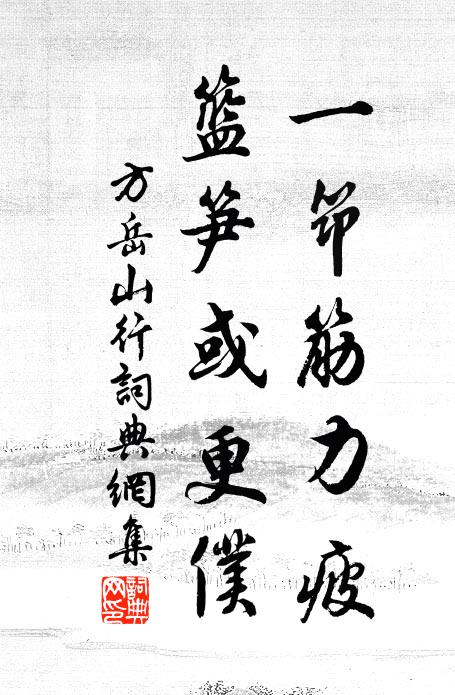 一筇筋力疲
籃笋或更僕
方岳山行詞典網集
詞典
网印